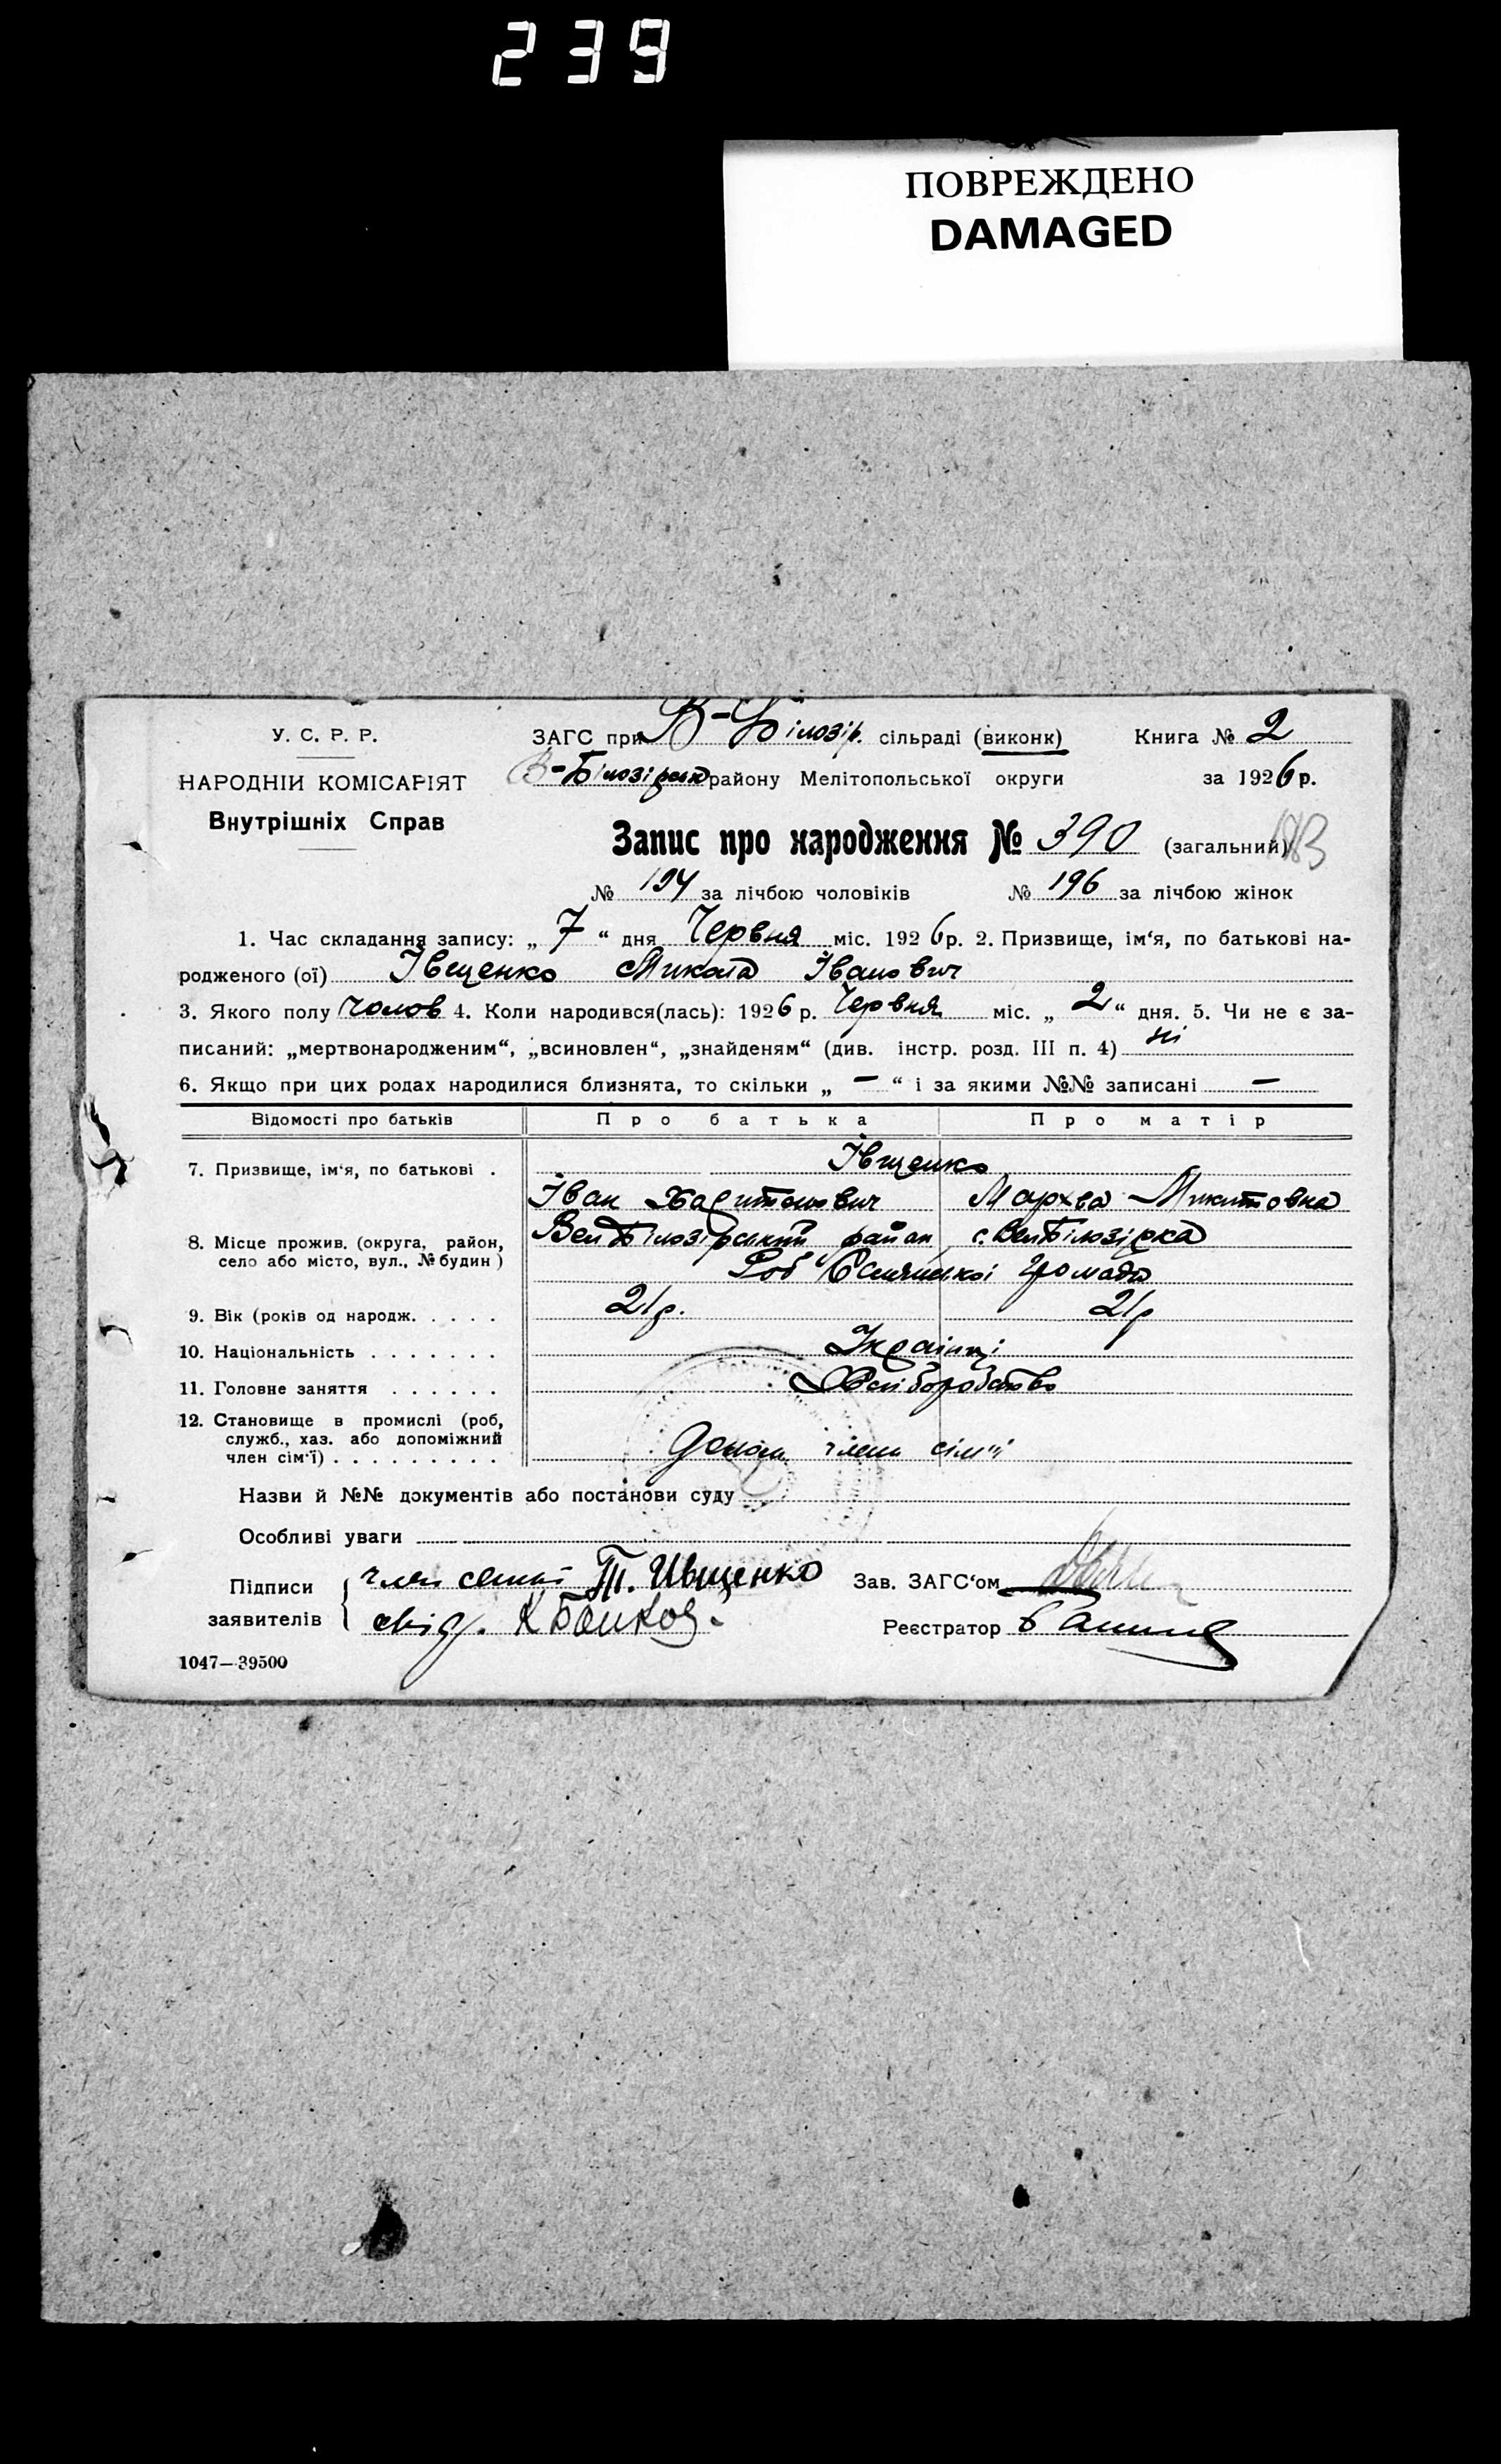 239
ПОВРЕЖДЕНО
DAMAGED
У. С. Р. Р.
НАРОДНІЙ КОМІСАРІЯТ
Внутрішніх Справ
ЗАГС при В-Білозір. сільраді (виконк) Книга № 2
В-Білозірськ району Мелітопольської округи за 1926 р.
Запис про народження № 390 (загальний)
№ 194 за лічбою чоловіків № 196 за лічбою жінок
1. Час складання запису: „ 7 “ дня Червня міс. 1926 р. 2. Призвище, ім‘я, по батькові на-
родженого (ої) Івщенко Микола Іванович
3. Якого полу чолов 4. Коли народився(лась): 1926 р. Червня міс. „ 2 “ дня. 5. Чи не є за-
писаний: „мертвонародженим“, „всиновлен“, „знайденям“ (див. інстр. розд. III п. 4) ні
6. Якщо при цих родах народилися близнята, то скільки „ — “ і за якими №№ записані —
Відомості про батьків Про батька Про матір
7. Призвище, ім‘я, по батькові . Івщенко
Іван Харитонович Мархва Микитовна
8. Місце прожив. (округа, район, село або місто, вул., № будин) Вел Білозірський район, с. Вел Білозірка
громади
9. Вік (років од народж. . . . . 21 р. 21 р
10. Національність . . . . . . . Українці
11. Головне заняття . . . . . . Хліборобство
12. Становище в промислі (роб, служб., хаз. або допоміжний член сім‘ї) . . . . . . . . . допом. член сім'ї
Назви й №№ документів або постанови суду
Особливі уваги
Підписи заявителів { член семьи Т. Ивщенко Зав. ЗАГС‘ом
свід. К Реєстратор
1047—39500